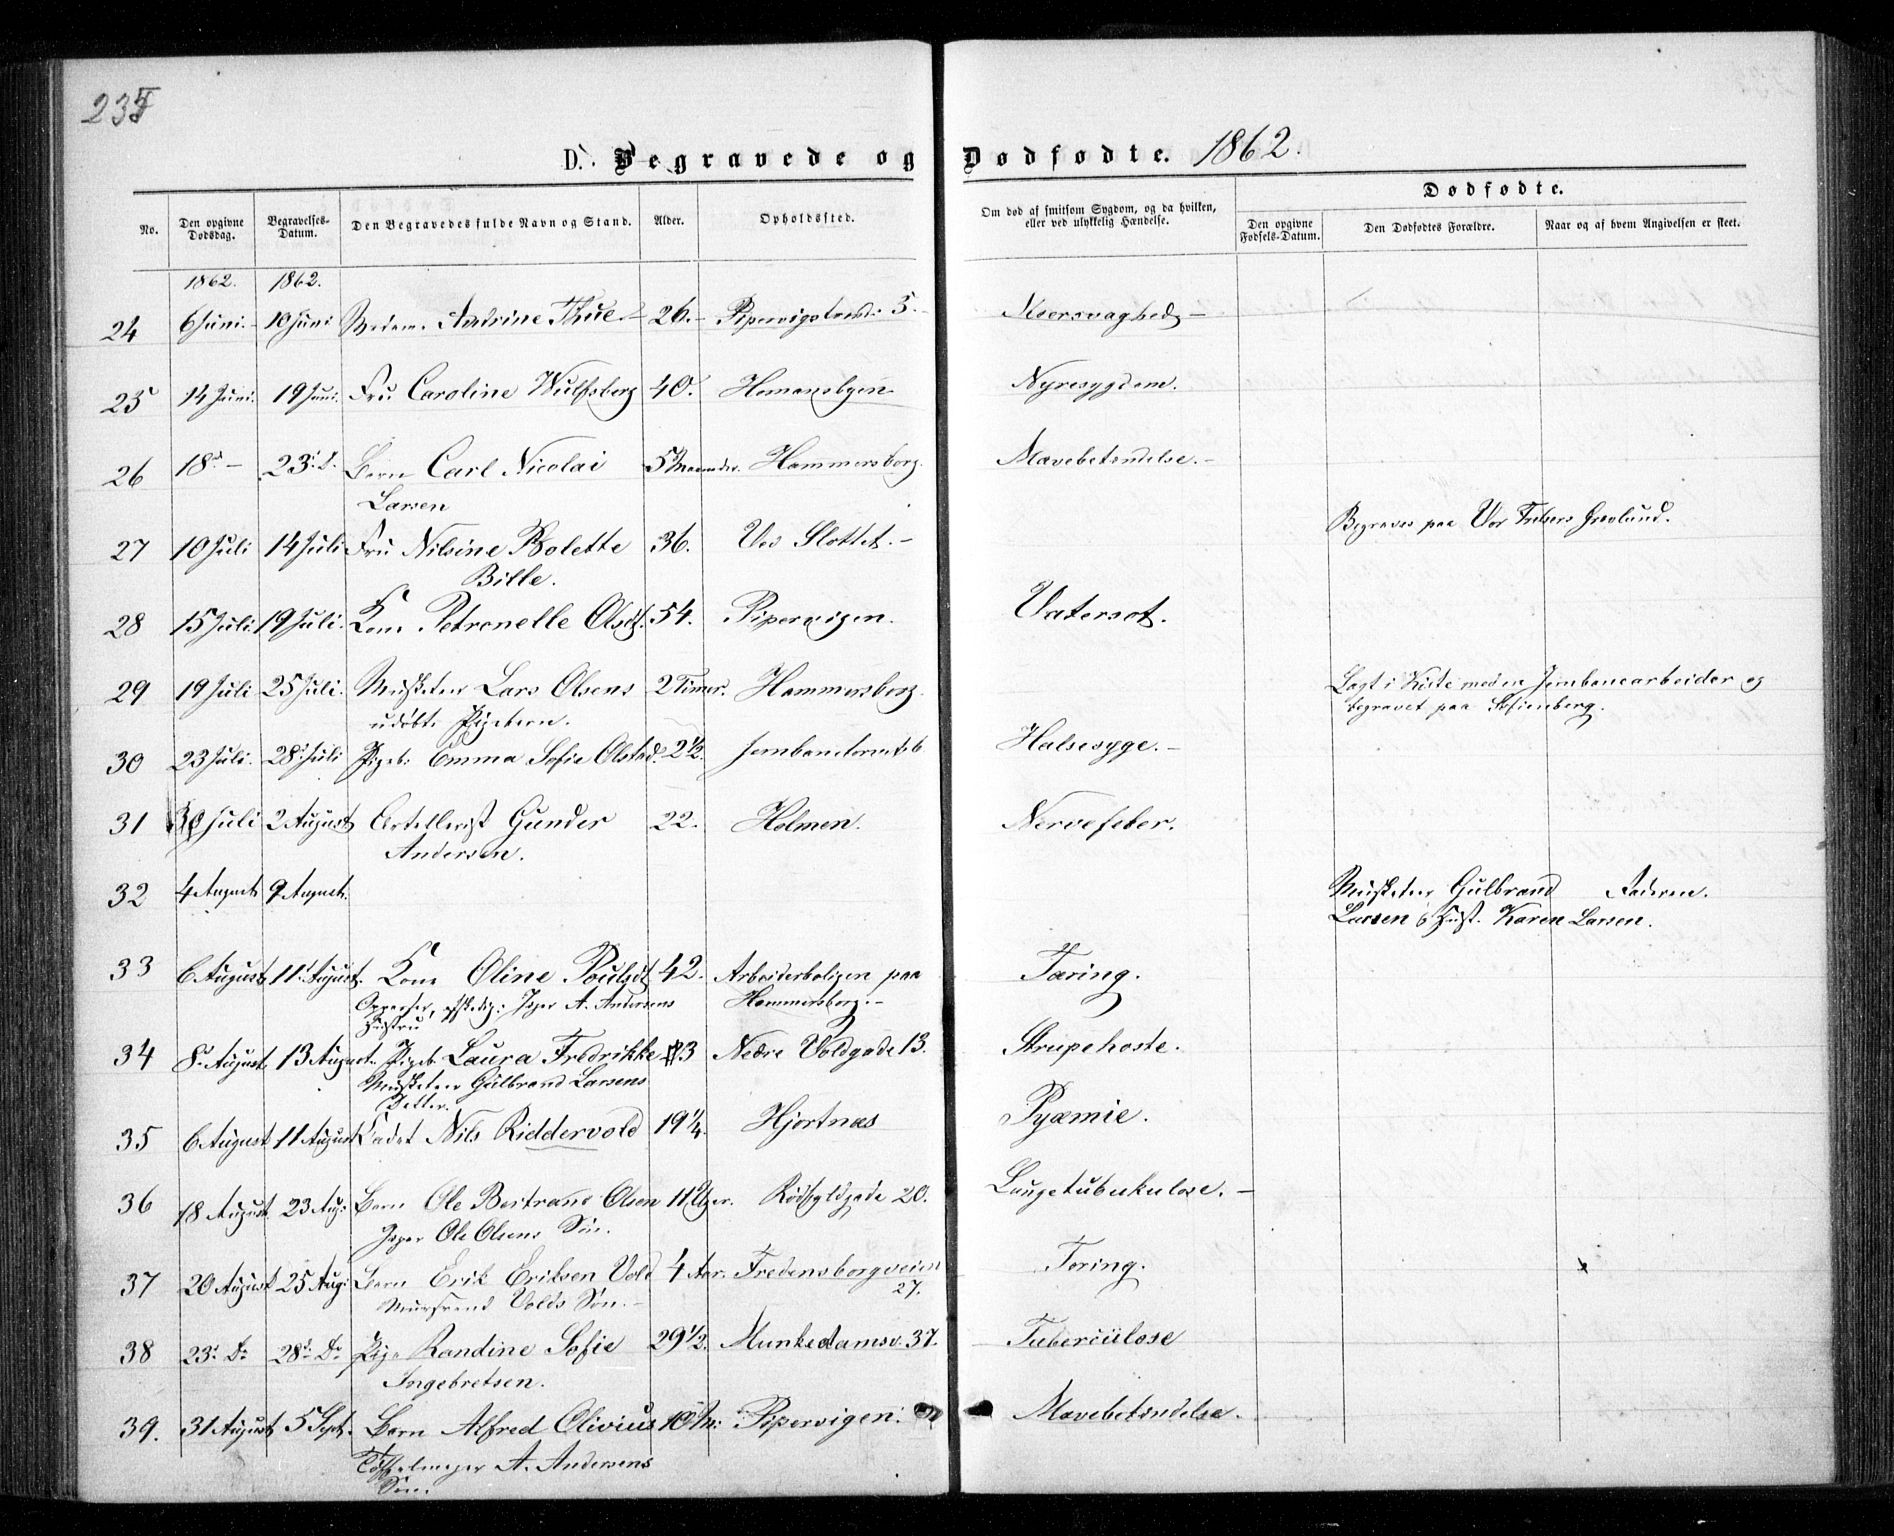 235
D. Begravede og Dødfødte. 1862.
No. Den opgivne Dødsdag. Begravelses-Datum. Den Begravedes fulde Navn og Stand. Alder. Opholdssted. Om død af smitsom Sygdom, og da hvilken, eller ved ulykkelig Hændelse. Dødfødte.
Den opgivne Fødsels-Datum. Den Dødfødtes Forældre. Naar og af hvem Angivelsen er skeet.
1862. 1862.
24 6 Juni. 10 Juni Madam. Andrine Thue 26. Pipervigstrand. 5. Nersvaghed
25 14 Juni. 19 Juni. Fru Caroline Wulfsberg 40. Homansbyen Nyresygdom.
26 18d 23d D. Barn Carl Nicolai 5 Maaneder. Hammersborg. Mavebetændelse.
Larsen
Begraves paa Vor Frelsers Gravlund.
27 10 Juli 14 Juli Fru Nilsine Bolette 36. Ved Slottet.
Bille.
28 15 Juli. 19 Juli. Kone Petronelle Olsdt. 54. Pipervigen. Vatersot.
29 19 Juli 25 Juli. Musketeer Lars Olsens 2 Timer. Hammersborg. Lagt i Kiste med en Jernbanearbeider og
udøbte Pigebarn. begravet paa Sofienberg.
30 23 Juli. 28 Juli Pigeb. Emma Sofie Olstad. 2 1/2. Halsesyge.
31 30 Juli 2 August Artillerist Gunder 22. Holmen. Nervefeber.
Andersen.
32 4 August 9 August. Musketeer Gulbrand Faderen.
Larsen & Hust. Karen Larsen.
33 6 August 11 August. Kone Oline Poulsdt 42. Arbeiderboligen paa Tæring.
Oppasser, afskediget Jæger A. Andersens Hammersborg.
Hustru
34 8 August. 13 August. Pigeb. Laura Fredrikke 3 Nedre Voldgade 13. Strupehoste.
Musketeer Gulbrand Larsens
Datter.
35 6 August 11 August Cadet Nils Riddervold 19 1/4. Hjortnæs Pyæmie.
36 18 August. 23 Aug. Barn Ole Bertrand Olsen 11 Uger. Rødfyldgade 20. Lungetuberkulose.
Jæger Ole Olsens Søn.
37 20 August 25 Aug. Barn Erik Eriksen Vold 4 Aar. Fredensborgveien Tæring.
Mursvend Volds Søn. 27.
38 23d Do 28d Do Pige Randine Sofie 29 1/2. Munkedamsv. 37. Tuberculose
Ingebretsen.
39. 31 August 5 Sept. Barn Alfred Olivius 10 M. Pipervigen. Mavebetændelse.
Tøffelmager A. Andersens
Søn.